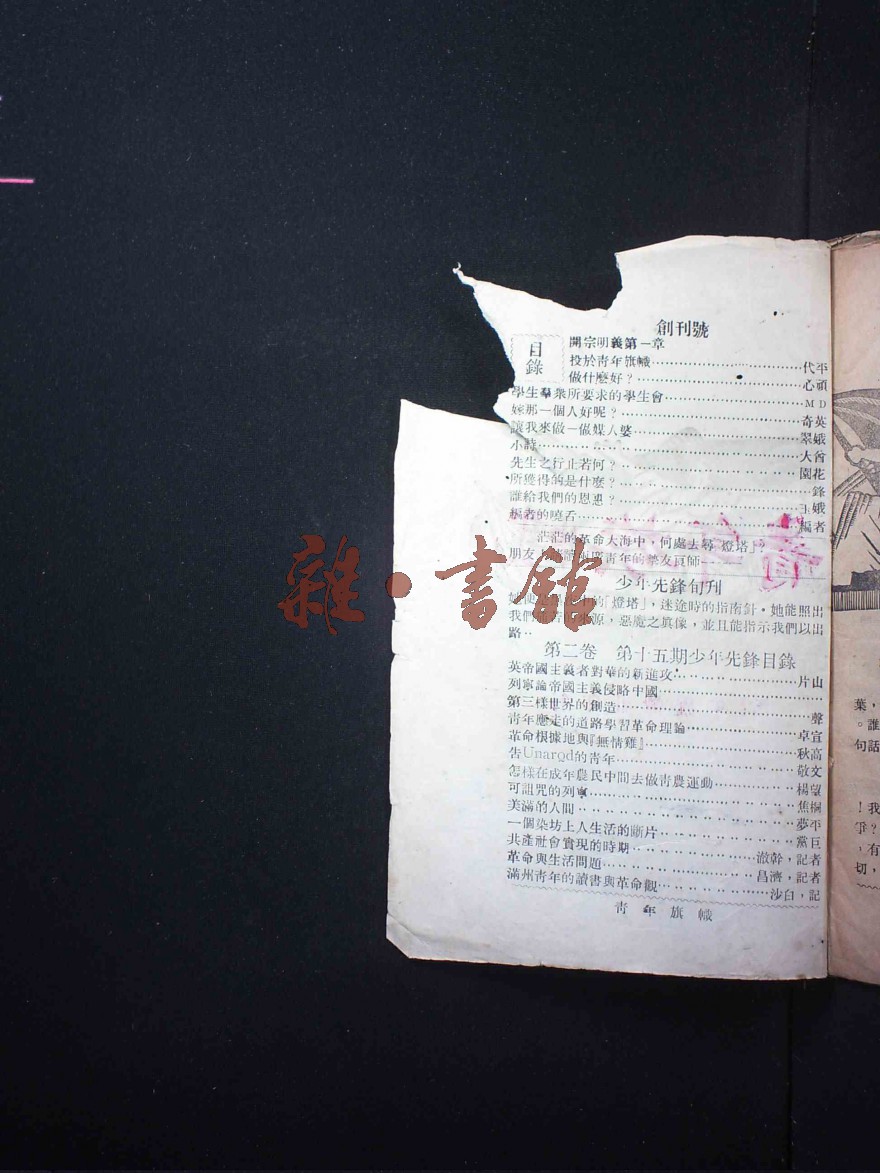 創刊號
目錄
開宗明義第一章
投於靑年旗幟……………………代平
做什麼好？……………………心頑
學生羣衆所要求的學生會……………………MD
嫁那一個人好呢？……………………奇英
讓我來做一做媒人婆……………………翠娥
小詩……………………大酋
先生之行止若何？……………………園花
所獲得的是什麼？……………………鋒
誰給我們的恩惠？……………………玉娥
編者的曉舌……………………編者
茫茫的革命大海中，何處去尋「燈塔」？
朋友
靑年的摯友良師
少年先鋒旬刊
的「燈塔」，迷途時的指南針。她能照出
我們 來源，惡魔之眞像，並且能指示我們以出
路‥
第二卷　第十五期少年先鋒目錄
英帝國主義者對華的新進攻……………………片山
列寧論帝國主義侵略中國……………………
第三樣世界的創造……………………聲
靑年應走的道路學習革命理論……………………卓宣
革命根據地與『無情雞』……………………秋高
告Unarod的靑年……………………敬文
怎樣在成年農民中間去做靑農運動……………………楊望
可詛咒的列車……………………焦桐
美滿的人間……………………夢平
一個染坊上人生活的斷片……………………黨巨
共產社會實現的時期……………………澈幹，記者
革命與生活問題……………………昌濟，記者
滿州靑年的讀書與革命觀……………………沙白，記
靑年旗幟
葉，
。誰
句話
！我
爭？
，有
切，
雜·書館